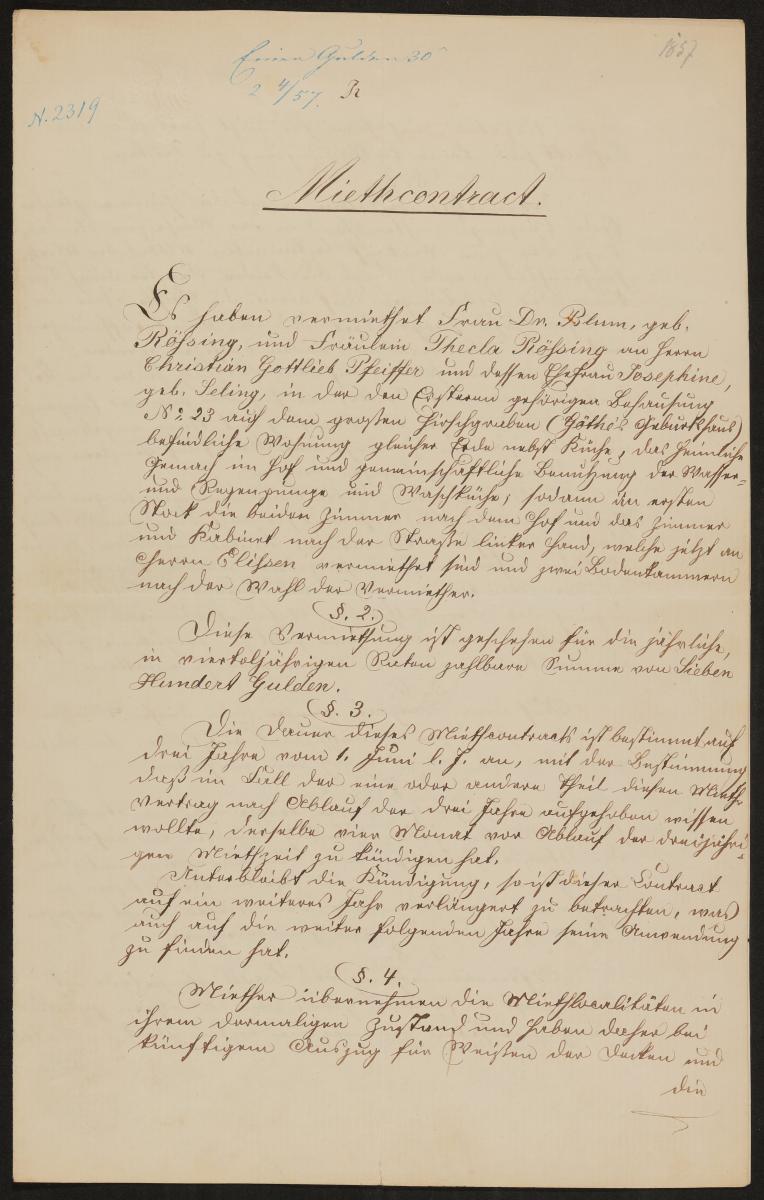 1857
Einen Gulden 30
2 4/57. R
N. 2319
Miethcontract.
Es haben vermiethet Frau Dr. Blum, geb.
Rößing, und Fräulein Thecla Rößing an Herrn
Christian Gottlieb Pfeiffer und dessen Ehefrau Josephine,
geb. Seling, in der den Ersteren gehörigen Behausung
No. 23 auf dem großen Hirschgraben (Göthe's Geburtshaus)
befindliche Wohnung gleicher Erde nebst Küche, das heimliche
Gemach im Hof und gemeinschaftliche Benutzung der Wasser-
und Regenpumpe und Waschküche; sodann im ersten
Stock die beiden Zimmer nach dem Hof und das Zimmer
und Kabinet nach der Straße linker Hand, welche jetzt an
Herrn Elißen vermiethet sind und zwei Bodenkammern
nach der Wahl der Vermiether.
§. 2.
Diese Vermiethung ist geschehen für die jährliche,
in vierteljährigen Raten zahlbare Summe von Sieben
Hundert Gulden.
§. 3.
Die Dauer dieses Miethcontracts ist bestimmt auf
drei Jahre vom 1. Juni l. J. an, mit der Bestimmung
daß im Fall der eine oder andere Theil diesen Mieth-
vertrag nach Ablauf der drei Jahre aufgehoben wissen
wollte, derselbe vier Monat vor Ablauf der dreijähri-
gen Miethzeit zu kündigen hat.
Unterbleibt die Kündigung, so ist dieser Contract
auf ein weiteres Jahr verlängert zu betrachten, was
auch auf die weiter folgenden Jahre seine Anwendung
zu finden hat.
§. 4.
Miether übernehmen die Miethlocalitäten in
ihrem dermaligen Zustand und haben daher bei
künftigem Auszug für Weißen der Decken und
die